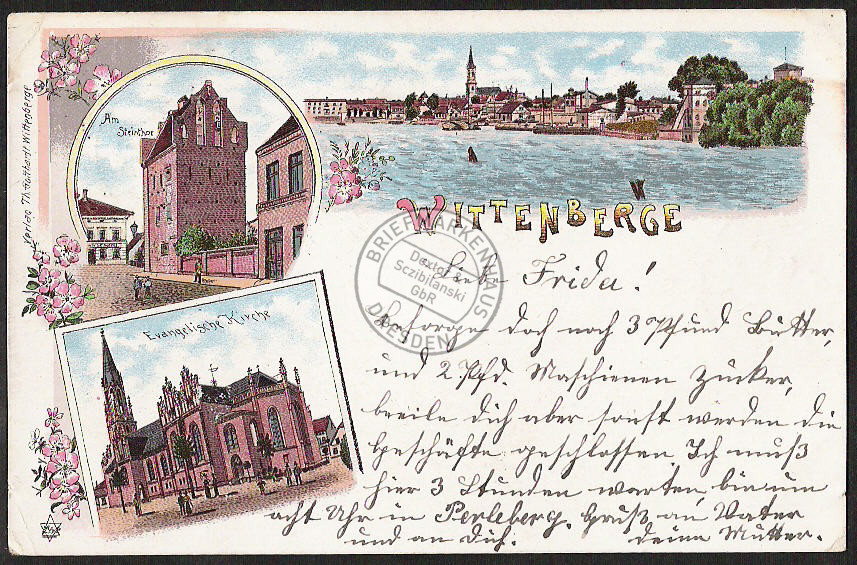 Verlag Th. Gotthardt Wittenberge
Am
Steinthor
WITTENBERGE
Evangelische Kirche
BRIEFMARKENHAUS
Dextol &
Sczibilanski
GbR
DRESDEN
Liebe Frida!
besorge doch noch 3 Pfund Butter,
und 2 Pfd. Maschienen Zucker,
beeile dich aber sonst werden die
Geschäfte geschlossen Ich muß
hier 3 Stunden warten, bin um
acht Uhr in Perleberg. Gruß an Vater
und an dich. deine Mutter.